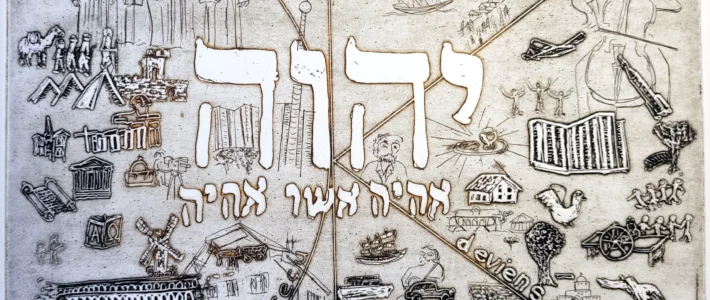 יהוה
אהיה אשר אהיה
devien